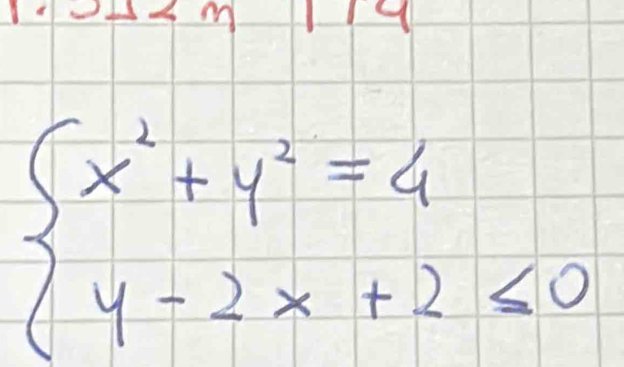 x² + y² = 4
y - 2x + 2 ≤ 0